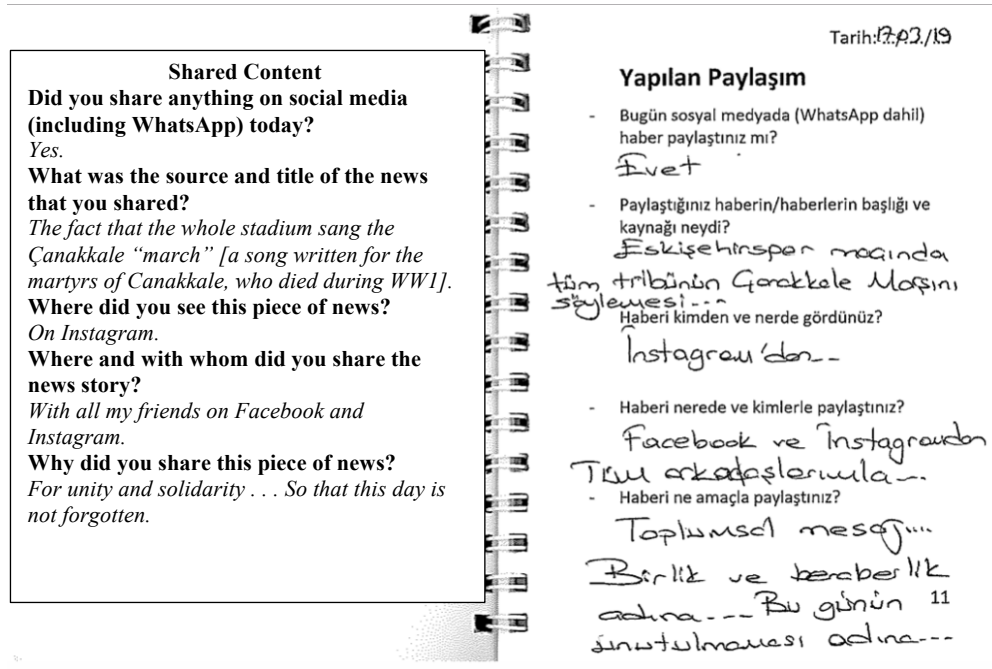 Shared Content
Did you share anything on social media
(including WhatsApp) today?
Yes.
What was the source and title of the news
that you shared?
The fact that the whole stadium sang the
Çanakkale “march” [a song written for the
martyrs of Canakkale, who died during WW1].
Where did you see this piece of news?
On Instagram.
Where and with whom did you share the
news story?
With all my friends on Facebook and
Instagram.
Why did you share this piece of news?
For unity and solidarity . . . So that this day is
not forgotten.
Tarih:17.03./19
Yapılan Paylaşım
- Bugün sosyal medyada (WhatsApp dahil)
haber paylaştınız mı?
Evet
- Paylaştığınız haberin/haberlerin başlığı ve
kaynağı neydi?
Eskişehirspor maçında
tüm tribünün Çanakkale Marşını
söylemesi...
Haberi kimden ve nerde gördünüz?
İnstagram'dan..
- Haberi nerede ve kimlerle paylaştınız?
Facebook ve İnstagramdan
Tüm arkadaşlarımla...
- Haberi ne amaçla paylaştınız?
Toplumsal mesaj....
Birlik ve beraberlik
adına.... Bu günün
unutulmaması adına...
11